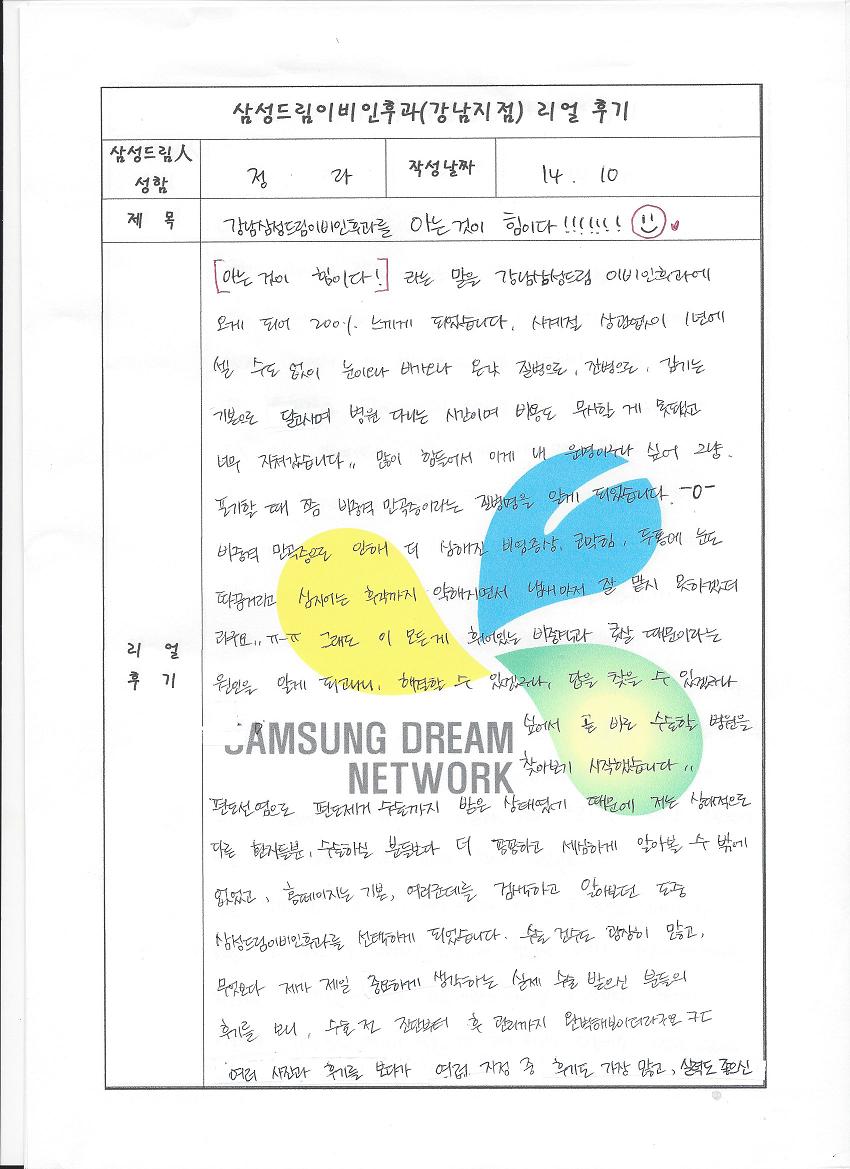 삼성드림이비인후과(강남지점) 리얼 후기
삼성드림人
성함
정 라
작성날짜
14. 10
제 목
강남삼성드림이비인후과를 아는것이 힘이다!!!!!!!
[아는것이 힘이다!] 라는 말을 강남삼성드림 이비인후과에
오게 되어 200% 느끼게 되었습니다. 사계절 상관없이 1년에
셀 수도 없이 눈이오나 비가오나 온갖 질병으로, 잔병으로, 감기는
기본으로 달고살며 병원 다니는 시간이며 비용도 무시할 게 못됐고
너무 지쳐갔습니다.. 많이 힘들어서 이게 내 운명이구나 싶어 그냥.
포기할 때 쯤 비중격 만곡증이라는 질병명을 알게 되었습니다. -0-
비중격 만곡증으로 인해 더 심해진 비염증상, 코막힘, 두통에 눈도
따끔거리고 심지어는 후각까지 약해지면서 냄새마저 잘 맡지 못하겠더
라구요.. ㅠ-ㅠ 그래도 이 모든게 휘어있는 비중격과 콧살 때문이라는
원인을 알게 되고나니, 해결할 수 있겠구나, 답을 찾을 수 있겠구나
싶어서 곧 바로 수술할 병원을
찾아보기 시작했습니다..
SAMSUNG DREAM
NETWORK
리 얼
후 기
편도선염으로 편도제거 수술까지 받은 상태였기 때문에 저는 상대적으로
다른 환자들분, 수술하실 분들보다 더 꼼꼼하고 세심하게 알아볼 수 밖에
없었고, 홈페이지는 기본, 여러군데를 검색하고 알아보던 도중
삼성드림이비인후과를 선택하게 되었습니다. 수술 건수도 굉장히 많고,
무엇보다 제가 제일 중요하게 생각하는 실제 수술 받으신 분들의
후기를 보니, 수술 전 진단부터 후 관리까지 완벽해보이더라구요 ㅋㄷ
여러 사진과 후기를 보다가 여러 지점 중 후기도 가장 많고, 실력도 좋으신